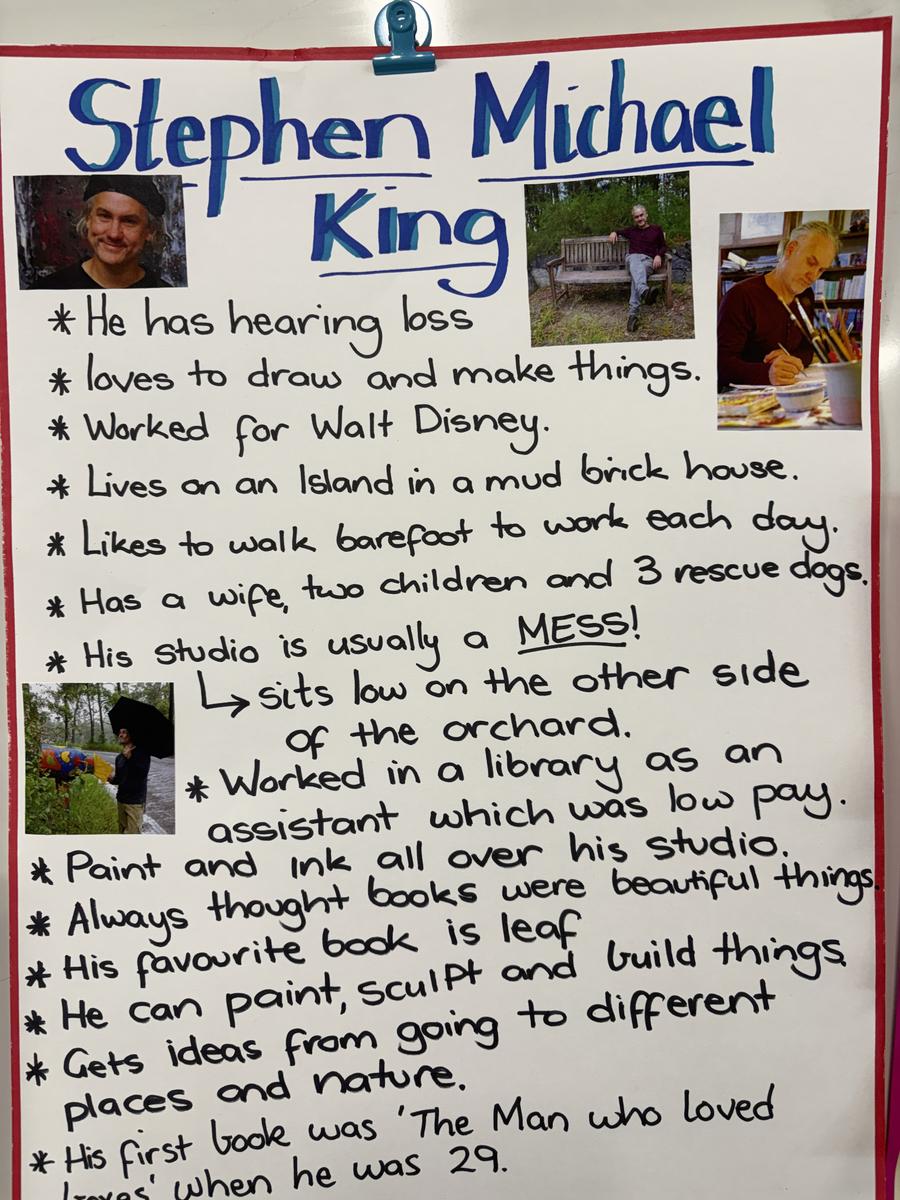 Stephen Michael
King
* He has hearing loss
* loves to draw and make things.
* Worked for Walt Disney.
* Lives on an Island in a mud brick house.
* Likes to walk barefoot to work each day.
* Has a wife, two children and 3 rescue dogs.
* His studio is usually a MESS!
↳ sits low on the other side
of the orchard.
* Worked in a library as an
assistant which was low pay.
* Paint and ink all over his studio.
* Always thought books were beautiful things.
* His favourite book is leaf
* He can paint, sculpt and build things.
* Gets ideas from going to different
places and nature.
* His first book was 'The Man who loved
boxes' when he was 29.